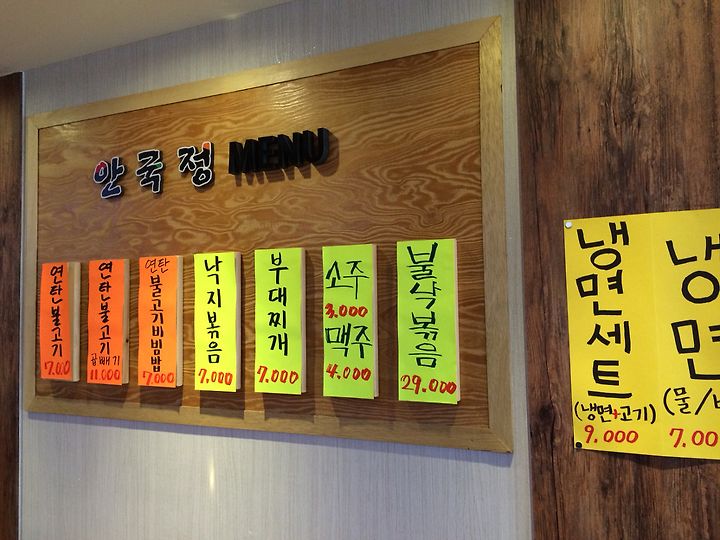 안국정 MENU
연탄불고기
7.000
연탄불고기
곱빼기
11.000
연탄
불고기비빔밥
7.000
낙지볶음
7.000
부대찌개
7.000
소주
3.000
맥주
4.000
불낙볶음
29.000
냉면세트
(냉면+고기)
9.000
냉면
(물/비
7.00